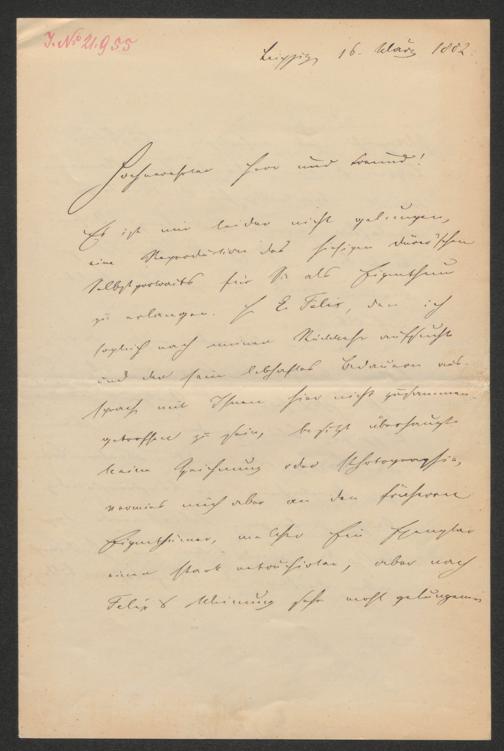 J. No 21.955
Leipzig, 16. März 1882.
Hochverehrter Herr und Freund!
Es ist mir leider nicht gelungen,
eine Reproduction des hiesigen Dürer'schen
Selbstportraits für Sie als Eigenthum
zu erlangen. H E. Felix, den ich
sogleich nach meiner Rückkehr aufsuchte
und der sein lebhaftes Bedauern aus-
sprach mit Ihnen hier nicht zusammen-
getroffen zu sein, besitzt überhaupt
keine Zeichnung oder Photographie,
verwies mich aber an den früheren
Eigenthümer, welcher ein Exemplar
einer stark retouchirten, aber nach
Felix's Meinung sehr wohl gelungenen